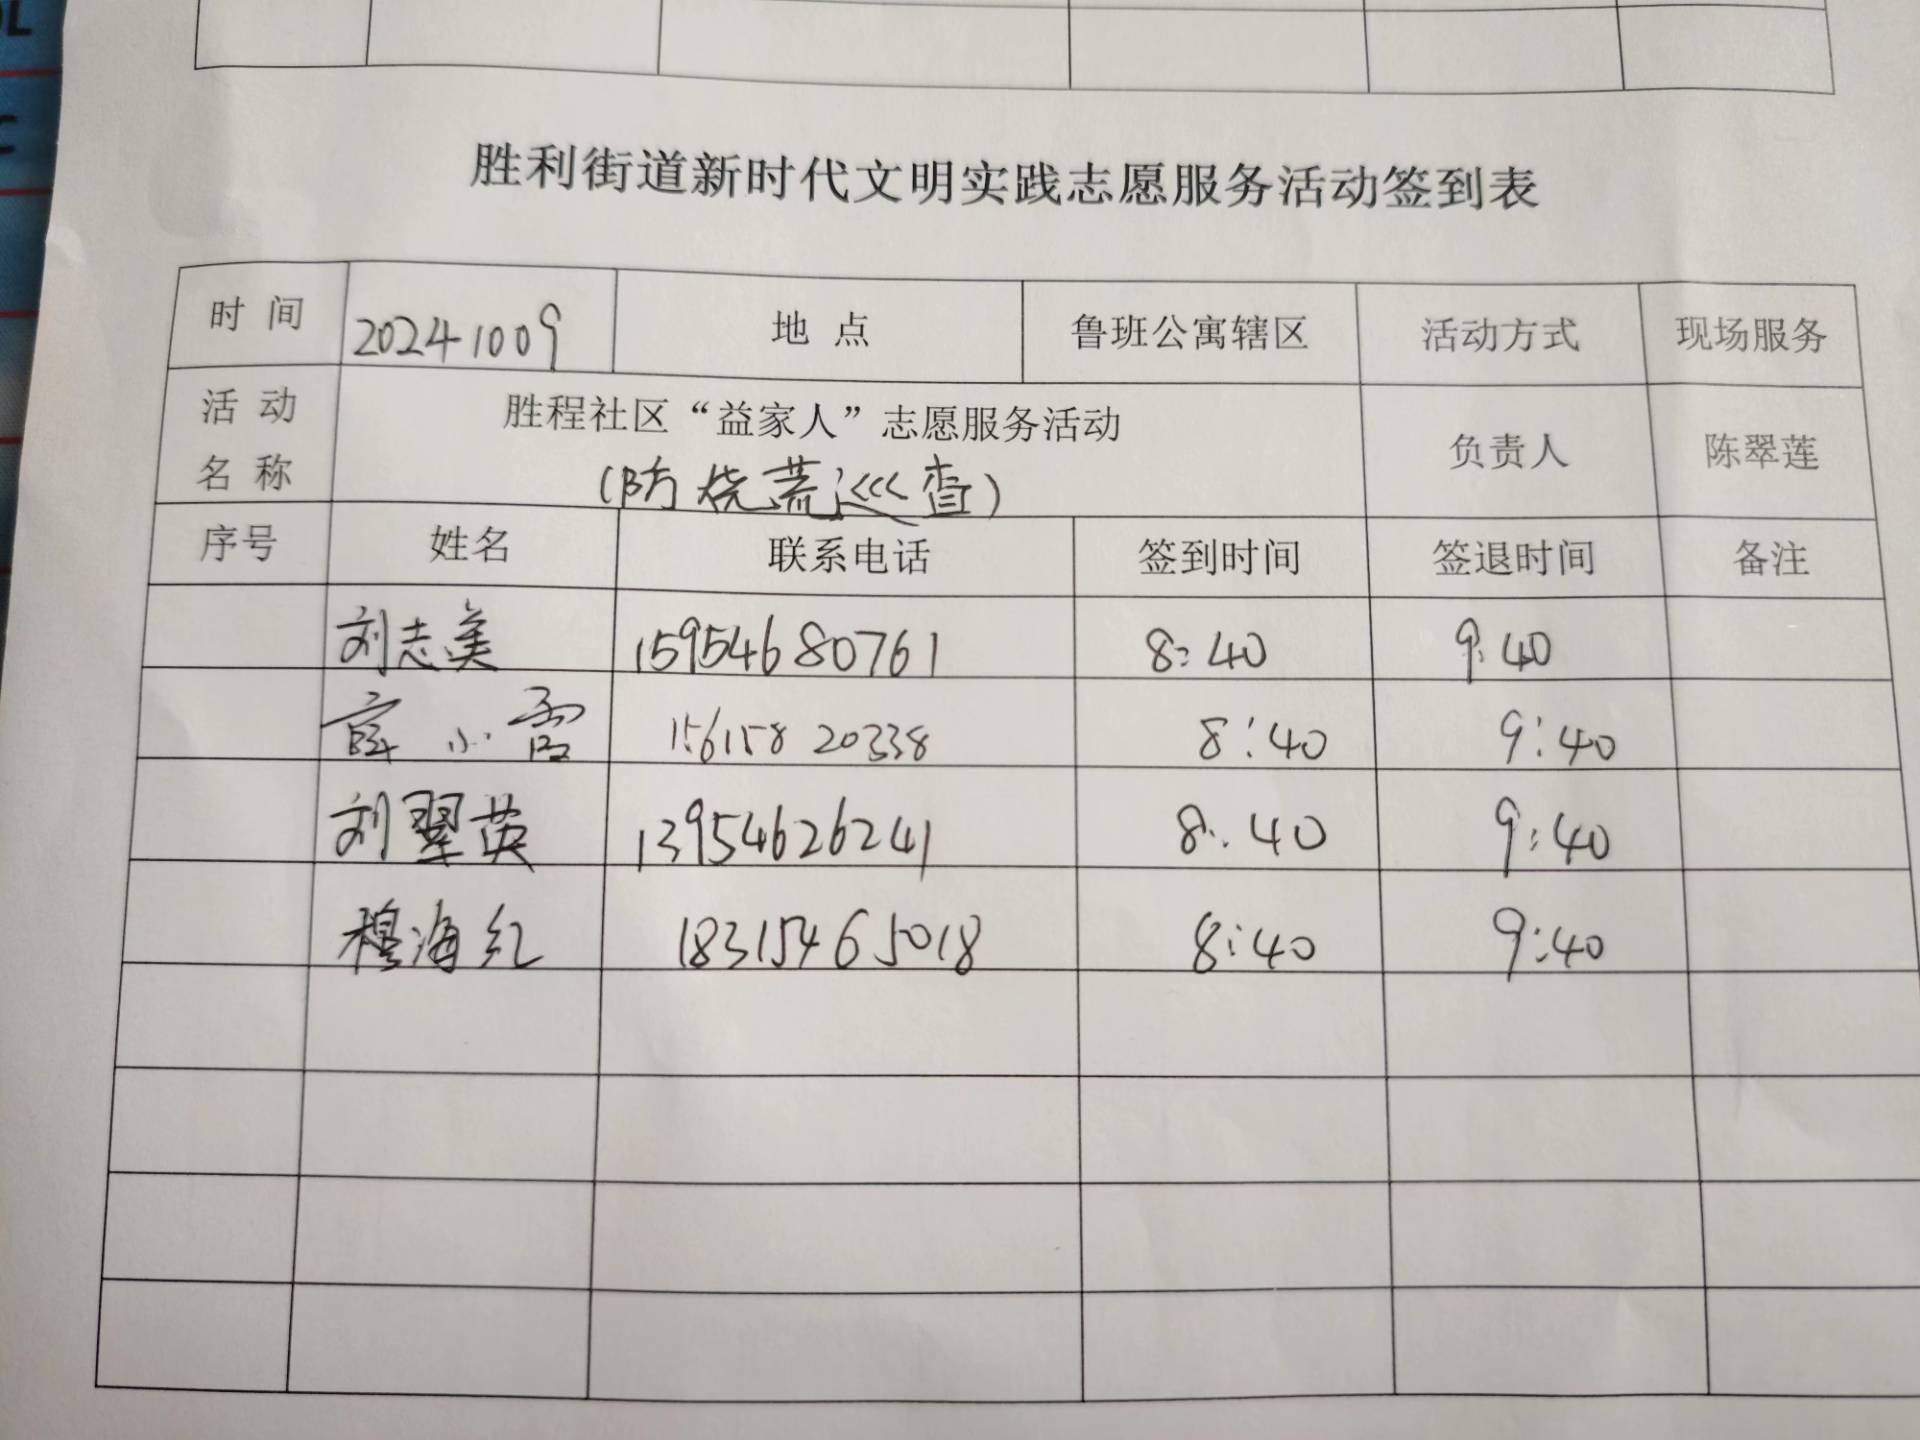 胜利街道新时代文明实践志愿服务活动签到表
时 间 20241009 地 点 鲁班公寓辖区 活动方式 现场服务
活 动 名 称 胜程社区“益家人”志愿服务活动 负责人 陈翠莲
(防烧荒巡查)
序号 姓名 联系电话 签到时间 签退时间 备注
刘志美 15954680761 8:40 9:40
薛小雪 15615820338 8:40 9:40
刘翠英 13954626241 8:40 9:40
穆海红 18315465018 8:40 9:40